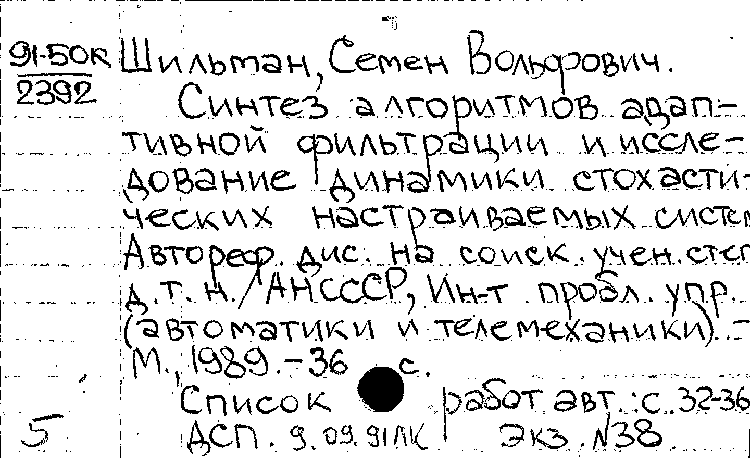 91-50К
2392
Шильман, Семен Вольфович.
Синтез алгоритмов адап-
тивной фильтрации и иссле-
дование динамики стохасти-
ческих настраиваемых систем
Автореф. дис. на соиск. учен. степ
д. т. н. / АН СССР, Ин-т пробл. упр.
(автоматики и телемеханики). -
М., 1989. - 36 с.
Список работ авт.: с. 32-36
ДСП. 9.09.91ЛК Экз. №38.
5